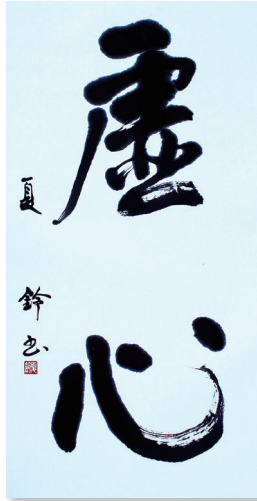 虚心
夏鈴书